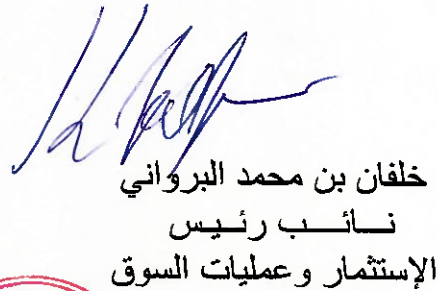 خلفان بن محمد البرواني
نائب رئيس
الإستثمار وعمليات السوق